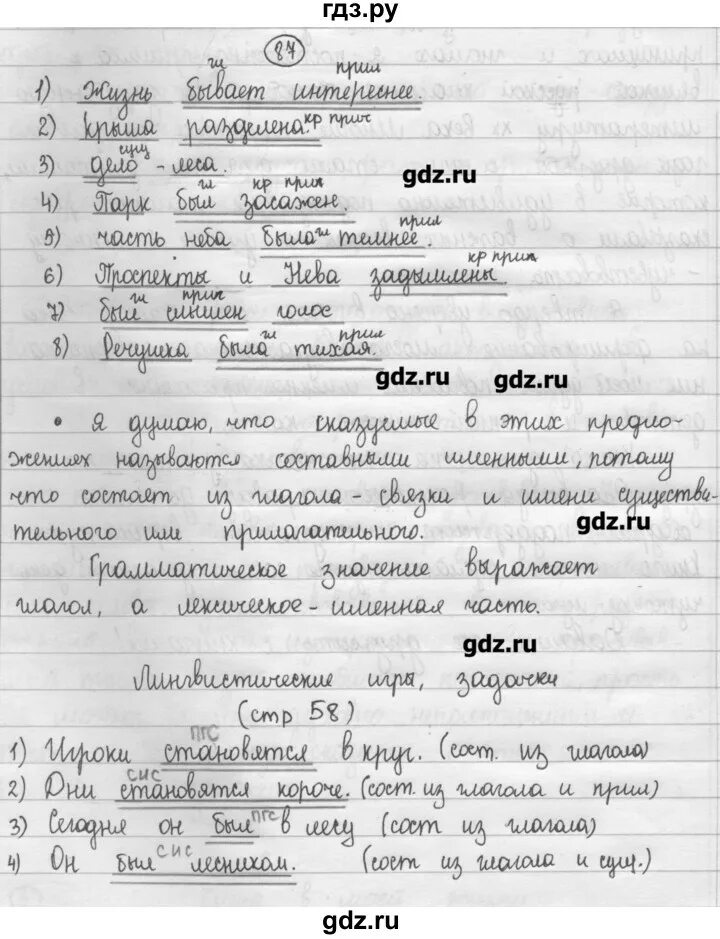 гдз.ру
87
гл прил
1) Жизнь бывает интереснее
2) Крыша разделена. кр прич
сущ
3) дело - леса.
gdz.ru
гл кр прич
4) Парк был засажен.
гл прил
5) часть неба была темнее.
кр прич
6) Проспекты и Нева задымлены.
гл прил
7) был слышен голос
гл прил
8) Речушка была тихая.
gdz.ru gdz.ru
• Я думаю, что сказуемые в этих предло-
жениях называются составными именными, потому
что состоят из глагола-связки и имени существи-
gdz.ru
тельного или прилагательного.
Грамматическое значение выражает
глагол, а лексическое - именная часть.
gdz.ru
Лингвистические игры, задачки
(стр 58)
ПГС
1) Игроки становятся в круг. (сост. из глагола)
СИС
2) Дни становятся короче. (сост. из глагола и прил)
3) Сегодня он был ПГС в лесу (сост из глагола)
4) Он был СИС лесником. (сост из глагола и сущ.)
gdz.ru